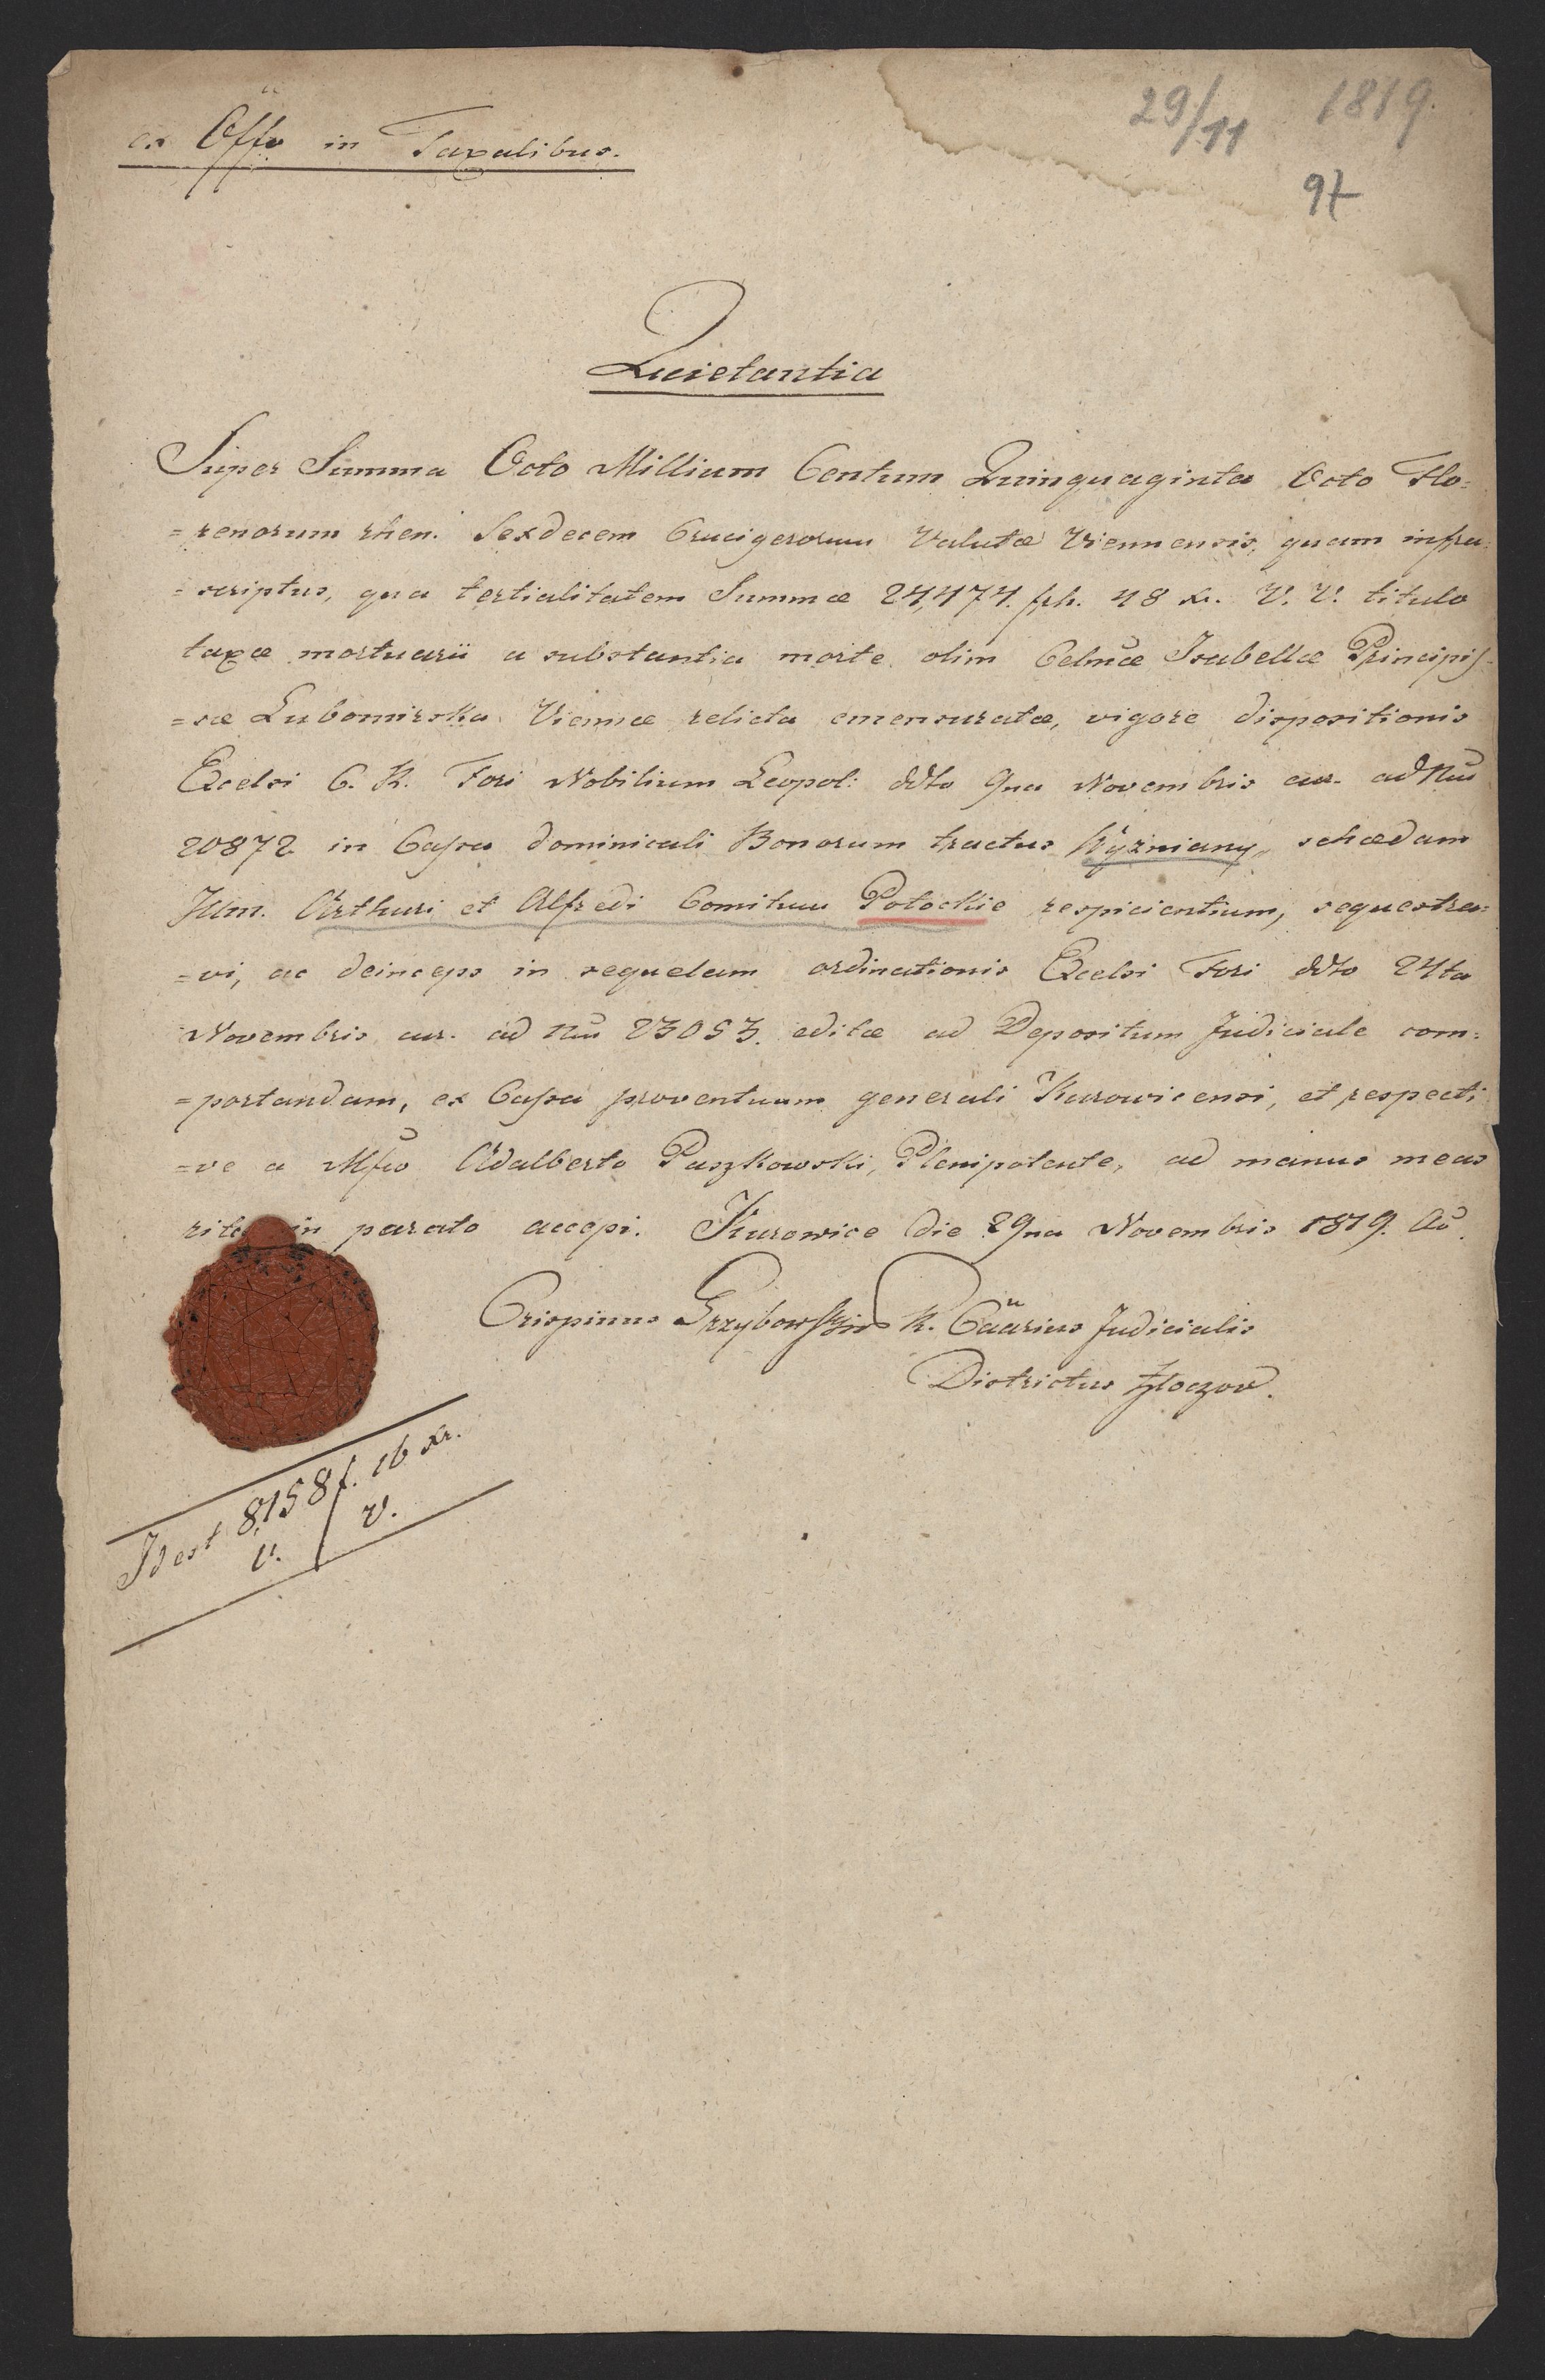 ex Offo in Taxalibus.
29/11 1819.
97
Quietantia
Super Summa Octo Millium Centum Quinquaginta Octo Flo=
=renorum rhen. Sexdecem Crucigerorum Valutæ Viennensis, quam infra=
=scriptus, qua tertialitatem Summæ 24,474. frh. 48 xr. V. V. titulo
taxæ mortuarii a substantia morte olim Celmæ Isabellæ Principis=
=sæ Lubomirska Viennæ relicta emensuratæ, vigore dispositionis
Excelsi C. R. Fori Nobilium Leopol: ddto 9na Novembris cur. ad Nrum
20872 in Cassa dominicali Bonorum tractus Kyzniany, schædam
Illm. Arthuri et Alfredi Comitum Potockie respicientium, sequestra=
=vi, ac deinceps in sequelam ordinationis Excelsi Fori ddto 24ta
Novembris cur. ad Nrum 23053. editæ ad Depositum Judiciale com=
=portandam, ex Cassa proventuum generali Kurovicensi, et respecti
=ve a Mfco Adalberto Paszkowski, Plenipotente, ad manus meas
rite in parato accepi. Kurowice die 29na Novembris 1819. Ao.
Crispinus Grzybowski R. Caärius Judicialis
Districtus Złoczov.
Idest 8,158 f. 16 xr.
V. V.